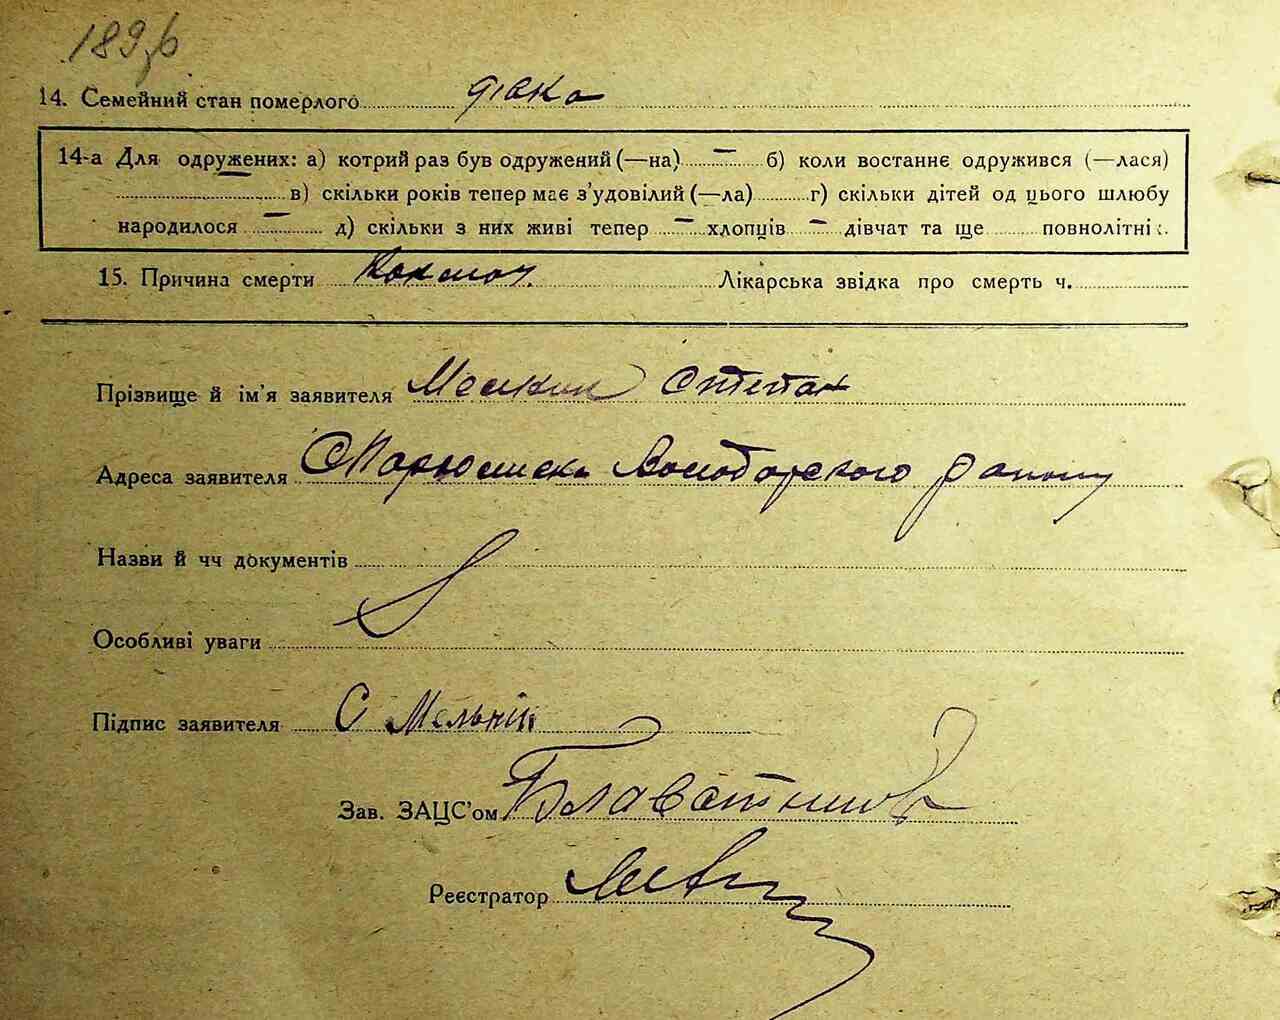 189
14. Семейний стан померлого
14-а Для одружених: а) котрий раз був одружений (—на) — б) коли востаннє одружився (—лася)
в) скільки років тепер має з'удовілий (—ла) г) скільки дітей од цього шлюбу
народилося — д) скільки з них живі тепер — хлопців — дівчат та ще повнолітні
15. Причина смерти Коклюш. Лікарська звідка про смерть ч.
Прізвище й ім'я заявителя Степан
Адреса заявителя Володарского району
Назви й чч документів
Особливі уваги
Підпис заявителя С Мельнік
Зав. ЗАЦС'ом
Реєстратор